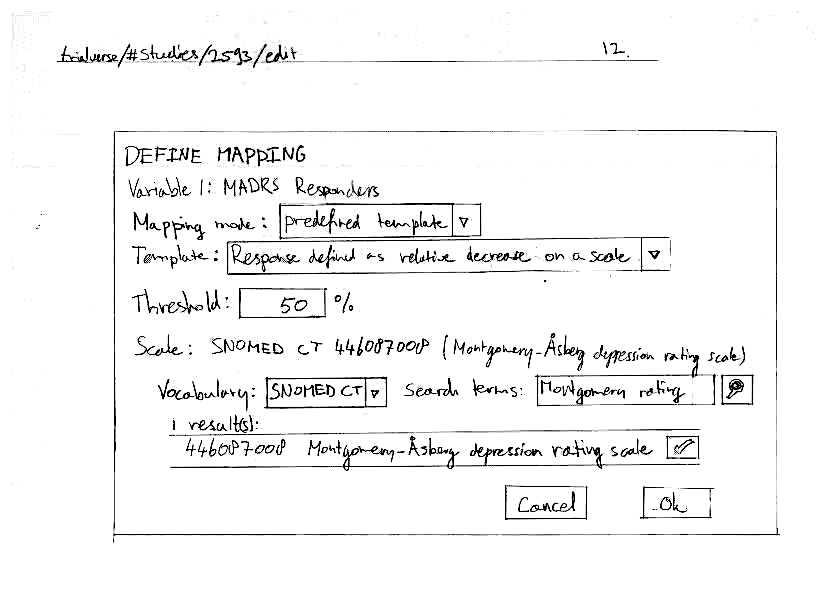 trialverse/#studies/2593/edit 12.
DEFINE MAPPING
Variable 1: MADRS Responders
Mapping mode: predefined template
Template: Response defined as relative decrease on a scale
Threshold: 50 %
Scale: SNOMED CT 446087008 (Montgomery-Åsberg depression rating scale)
Vocabulary: SNOMED CT Search terms: Montgomery rating
1 result(s):
446087008 Montgomery-Åsberg depression rating scale
Cancel Ok